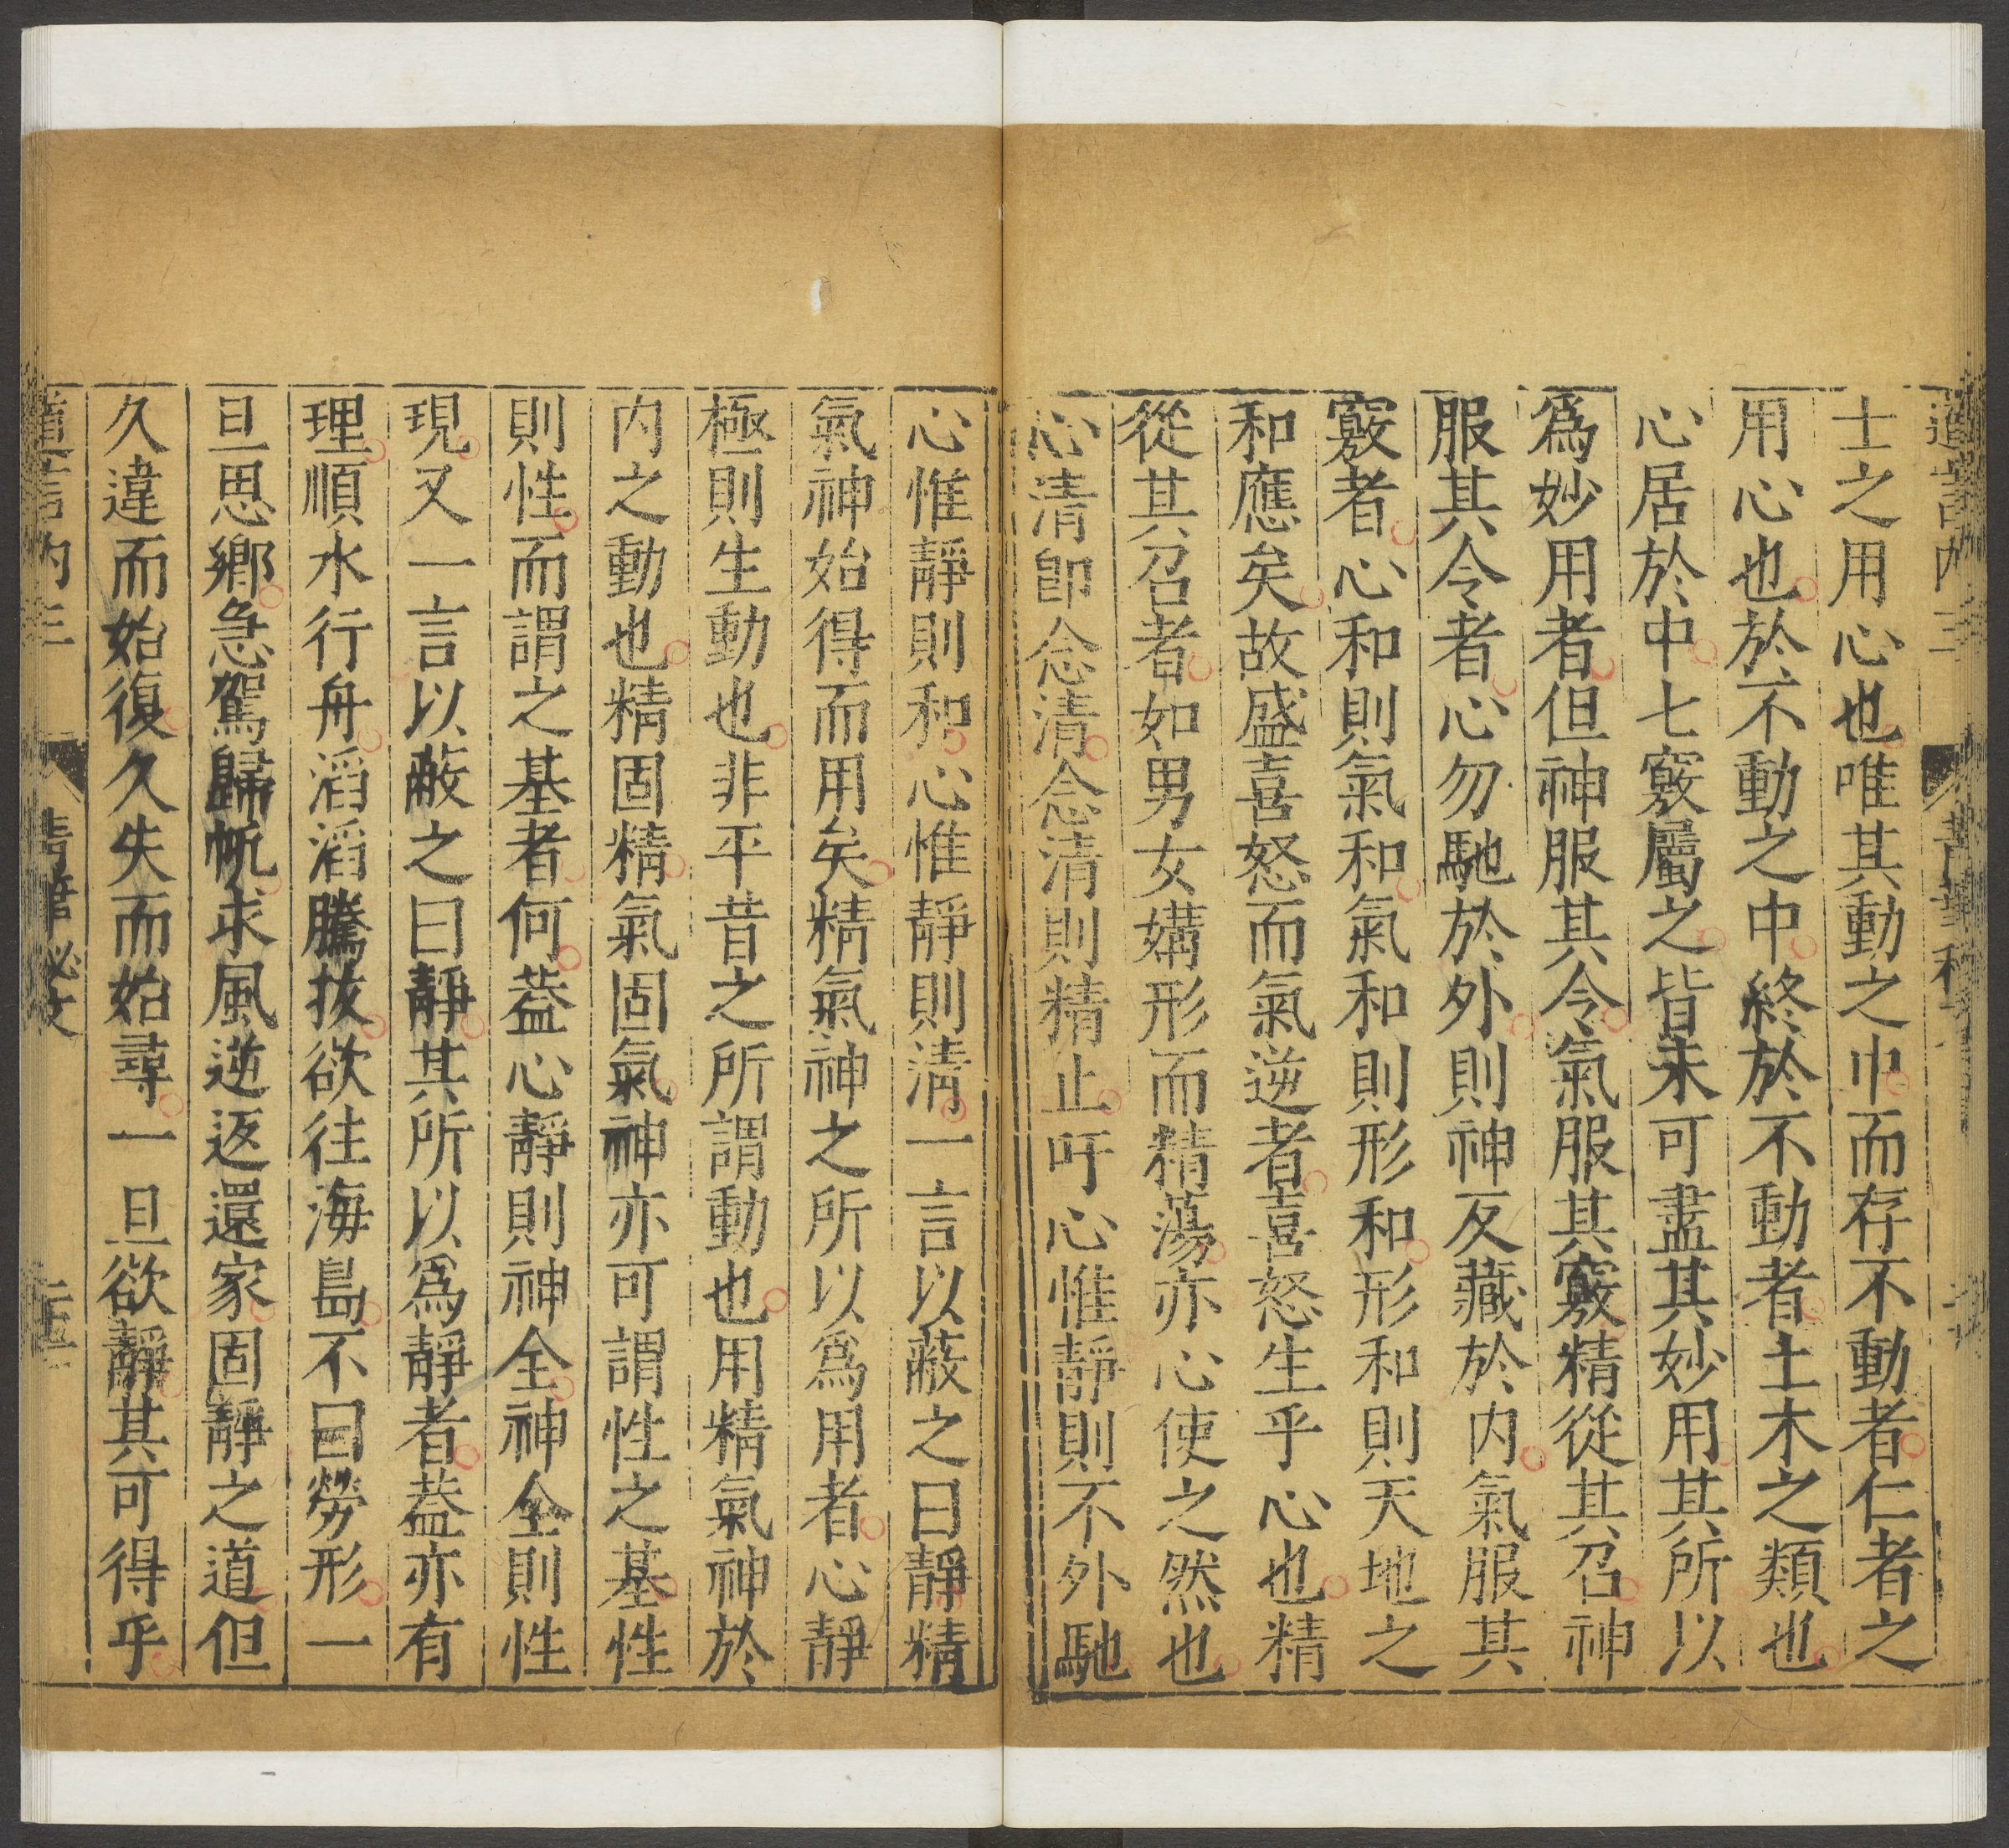 道言内三
士之用心也唯其動之中而存不動者仁者之
用心也於不動之中終於不動者土木之類也
心居於中七竅屬之皆未可盡其妙用其所以
爲妙用者但神服其令氣服其竅精從其召神
服其令者心勿馳於外則神反藏於内氣服其
竅者心和則氣和氣和則形和形和則天地之
和應矣故盛喜怒而氣逆者喜怒生乎心也精
從其召者如男女媾形而精蕩亦心使之然也
心清卽念清念清則精止吁心惟靜則不外馳
心惟靜則和心惟靜則淸一言以蔽之曰靜精
氣神始得而用矣精氣神之所以爲用者心靜
極則生動也非平昔之所謂動也用精氣神於
内之動也精固精氣固氣神亦可謂性之基性
則性而謂之基者何葢心靜則神全神全則性
現又一言以蔽之曰靜其所以爲靜者葢亦有
理順水行舟滔滔騰拔欲往海島不曰勞形一
旦思鄉急駕歸帆求風逆返還家固靜之道但
久違而始復久失而始尋一旦欲靜其可得乎
道言内三